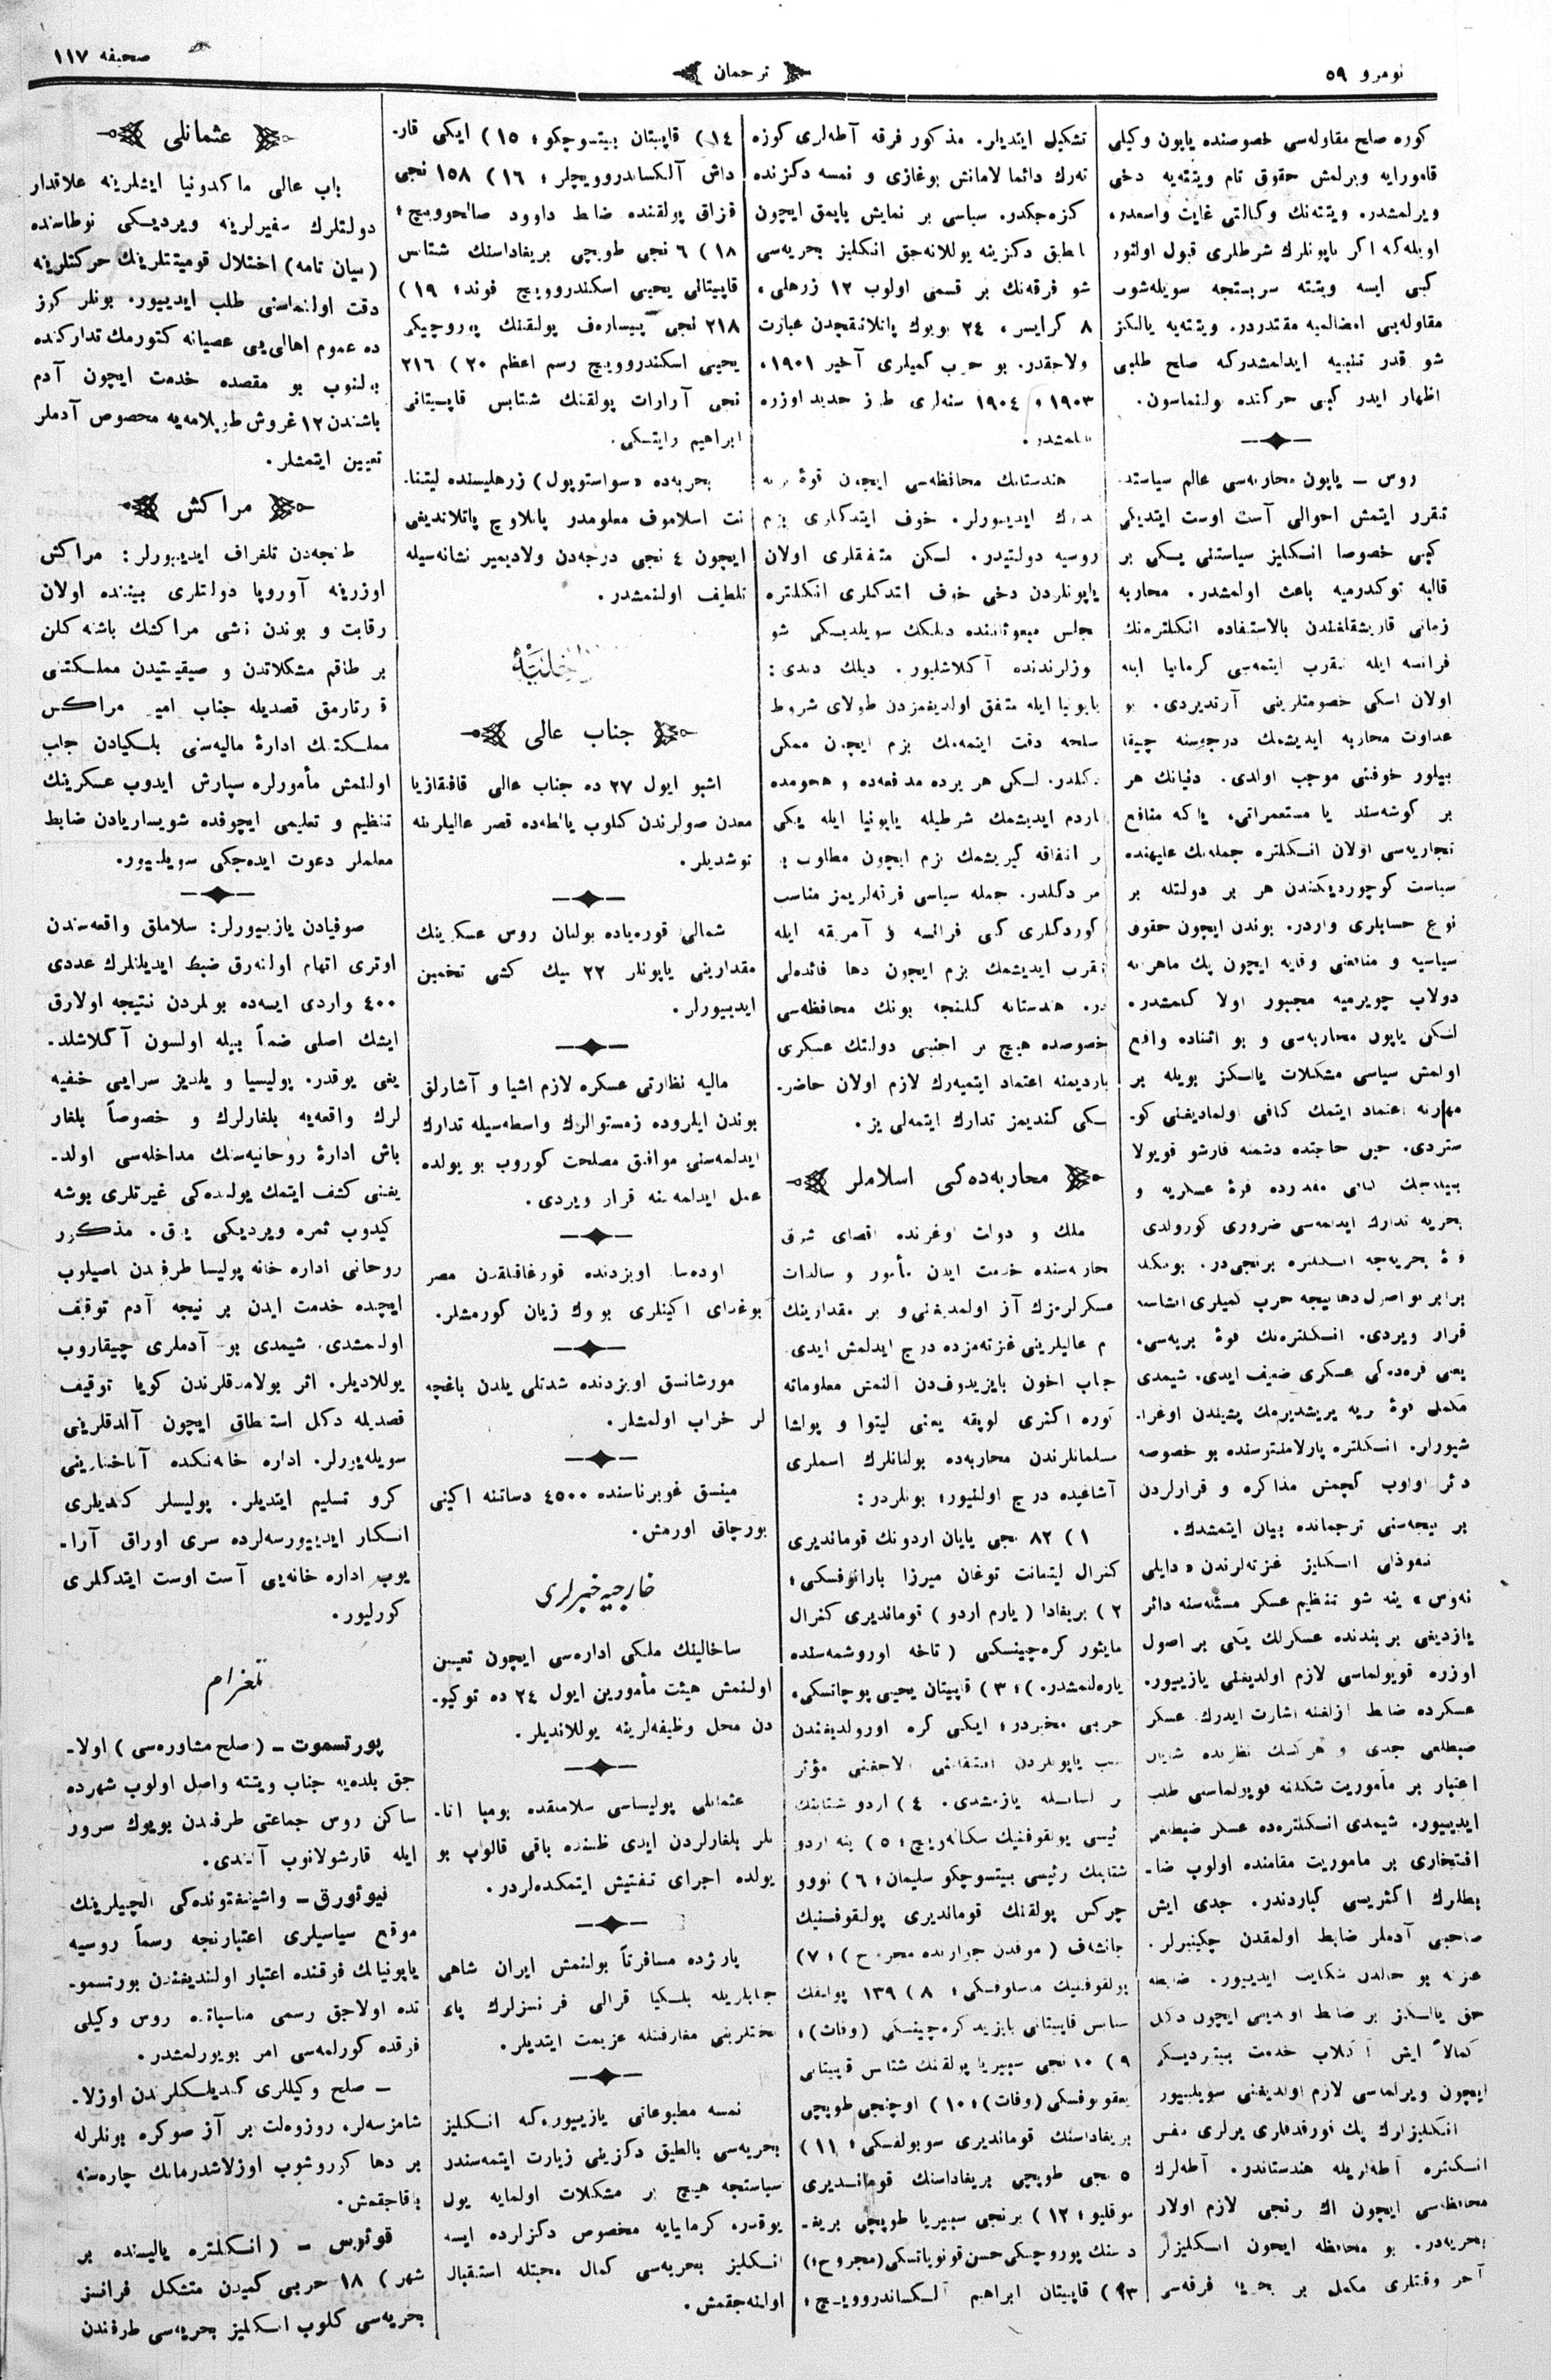 نومرو ٥٩
ترجمان
صحیفه ١١٧
كوره صلح مقاوله‌سی خصوصنده یاپون وكیلی
قامورایه ویرلمش حقوق تام ویتته‌یه دخی
ویرلمشدر. ویتته‌نك وكالتی غایت واسعدر،
اویله‌كه اكر یاپونلرك شرطلری قبول اولنور
كبی ایسه ویتته سربستجه سویله‌شوب
مقاوله‌یی امضالمیه مقتدردر. ویتته‌یه یالكز
شو قدر تنبیه ایدلمشدركه صلح طلبی
اظهار ایدر كبی حركتده بولنماسون.
روس – یاپون محاربه‌سی عالم سیاستده
تقرر ایتمش احوالی آست اوست ایتدیكی
كبی خصوصا انكلیز سیاستنی یكی بر
قالبه توكدرمیه باعث اولمشدر. محاربه
زمانی قاریشقلغندن بالاستفاده انكلتره‌نك
فرانسه ایله تقرب ایتمه‌سی كرمانیا ایله
اولان اسكی خصومتلرینی آرتدیردی. بو
عداوت محاربه ایدیشمك درجه‌سنه چیقا
بیلور خوفنی موجب اولدی. دنیانك هر
بر كوشه‌سنده یا مستعمراتی، یا كه منافع
تجاریه‌سی اولان انكلتره جمله‌نك علیهنده
سیاست كوچوردیكندن هر بر دولتله بر
نوع حسابلری واردر. بوندن ایچون حقوق
سیاسیه و منافعنی وقایه ایچون پك ماهرانه
دولاب چویرمیه مجبور اولا كلمشدر.
لكن یاپون محاربه‌سی و بو اثناده واقع
اولمش سیاسی مشكلات یالكز بویله بر
مهارته اعتماد ایتمك كافی اولمادیغنی كو-
ستردی. حین حاجتده دشمنه قارشو قویولا
بیله‌جك كافی مقدرده قوۀ عسكریه و
بحریه تدارك ایدلمه‌سی ضروری كورولدی
قوۀ بحریه‌جه انكلتره برنجی‌در. بونكله
برابر نواصول دها نیجه حرب كمیلری انشاسنه
قرار ویردی. انكلتره‌نك قوۀ بریه‌سی،
یعنی قره‌ده‌كی عسكری ضعیف ایدی. شیمدی
مكمل قوۀ بریه یریشدیرمك پشیندن اوغرا-
شیورلر. انكلتره پارلامنتوسنده بو خصوصه
دائر اولوب كچمش مذاكره و قرارلردن
بر نیجه‌سنی ترجمانده بیان ایتمشدك.
نفوذلی انكلیز غزته‌لرندن «دایلی
نه‌وس» ینه شو تنظیم عسكر مسئله‌سنه دائر
یازدیغی بر بندنده عسكرلك یكی بر اصول
اوزره قویولماسی لازم اولدیغنی یازییور.
عسكرده ضابط ازلغنه اشارت ایدرك عسكر
ضبطلغی جدی و هر كسك نظرنده شایان
اعتبار بر مأموریت شكلنه قویولماسنی طلب
ایدییور. شیمدی انكلتره‌ده عسكر ضبطلغی
افتخاری بر ماموریت مقامنده اولوب ضا-
بطلرك اكثریسی كباردندر. جدی ایش
صاحبی آدملر ضابط اولمقدن چكینیرلر.
غزته بو حالدن شكایت ایدییور. ضابطه
حق یالكز بر ضابط اولدیغی ایچون دكل
كمالاً ایش آكلاب خدمت بیتردیكی
ایچون ویرلماسی لازم اولدیغنی سویلییور
انكلیزلرك پك قورقدقلری یرلری نفس
انكلتره آطه‌لریله هندستاندر. آطه‌لرك
محافظه‌سی ایچون اك رنجی لازم اولان
بحریه‌در. بو محافظه ایچون انكلیزلر
آخر وقتلری مكمل بر بحریه فرقه‌سی
تشكیل ایتدیلر. مذكور فرقه آطه‌لری كوزه
ته‌رك دائما لامانش بوغازی و نمسه دكزنده
كزه‌جكدر. سیاسی بر نمایش یاپمق ایچون
بالطق دكزینه یوللانه‌جق انكلیز بحریه‌سی
شو فرقه‌نك بر قسمی اولوب ١٢ زرهلی،
٨ كرایسر، ٢٤ بویوك پاتلاتقیچدن عبارت
اولاجقدر. بو حرب كمیلری آخیر ١٩٠١،
١٩٠٣ و ١٩٠٤ سنه‌لری طرز جدید اوزره
یاپلمشدر.
هندستانك محافظه‌سی ایچون قوۀ بریه
تدارك ایدییورلر. خوف ایتدكلری بزم
روسیه دولتیدر. لكن متفقلری اولان
یاپونلردن دخی خوف اتدكلری انكلتره
مجلس مبعوثاننده دیلكك سویلدیكی شو
سوزلرندنده آكلاشلیور. دیلك دیدی:
یاپونیا ایله متفق اولدیغمزدن طولای شروط
صلحه دقت ایتمه‌مك بزم ایچون ممكن
دكلدر. لكن هر یرده مدافعه‌ده و هجومده
یاردم ایدیشمك شرطیله یاپونیا ایله یكی
بر اتفاقه كیریشمك بزم ایچون مطلوب بر
امر دكلدر. جمله سیاسی فرقه‌لریمز مناسب
كوردكلری كبی فرانسه و آمریقه ایله
تقرب ایدیشمك بزم ایچون دها فائده‌لی
در. هندستانه كلنجه بونك محافظه‌سی
خصوصده هیچ بر اجنبی دولتك عسكری
یاردیمنه اعتماد ایتمیه‌رك لازم اولان حاضر-
لكی كندیمز تدارك ایتمه‌لی یز.
محاربه‌ده‌كی اسلاملر
ملك و دولت اوغرنده اقصای شرق
محاربه‌سنده خدمت ایدن مأمور و سالدات
عسكرلرمزك آز اولمدیغنی و بر مقدارینك
نام عالیلرینی غزته‌مزده درج ایدلمش ایدی.
جناب اخون بایزیدوف‌دن النمش معلوماته
كوره اكثری لوپقه یعنی لیتوا و پولشا
مسلمانلرندن محاربه‌ده بولنانلرك اسملری
آشاغیده درج اولنیور؛ بونلردر:
١) ٨٢ نجی یایان اردونك قوماندیری
كنرال لیتنانت توغان میرزا بارانوفسكی؛
٢) بریغادا (یارم اردو) قوماندیری كنرال
مایئور كره‌چینسكی (تاخه اوروشمه‌سنده
یاره‌لنمشدر.)؛ ٣) قاپیتان یحیی پوچانسكی،
حربی مخبردر؛ ایكی كره اورولدیغندن
٤) اردو شتابنك
رئیسی پولقوفنیك سكانه‌ویچ؛ ٥) ینه اردو
شتابنك رئیسی بیتسوچكو سلیمان؛ ٦) نووو
چركس پولقنك قوماندیری پولقوفنیك
جانشه‌ف (موقدن جوارنده مجروح)؛ ٧)
پولقوفنیك ماسلوفسكی؛ ٨) ١٣٩ پولقنك
شتابس قاپیتانی بایزید كره‌چینسكی (وفات)؛
٩) ١٠ نجی سیبیریا پولقنك شتابس قاپیتانی
یعقوبوفسكی (وفات)؛ ١٠) اوچنجی طوپچی
بریغاداسنك قوماندیری سوبولفسكی؛ ١١)
٥ نجی طوپچی بریغاداسنك قوماندیری
موقلیو؛ ١٢) برنجی سیبیریا طوپچی بریغا-
داسنك پوروچیكی حسن قونوپاتسكی (مجروح؛)
١٣) قاپیتان ابراهیم آلكساندروویچ؛
١٤) قاپیتان بیتسوچكو؛ ١٥) ایكی قار-
داش آلكساندروویچلر؛ ١٦) ١٥٨ نجی
قزاق پولقنده ضابط داوود صالحوویچ؛
١٨) ٦ نجی طوپچی بریغاداسنك شتابس
قاپیتانی یحیی اسكندروویچ فوند؛ ١٩)
٢١٨ نجی پیساره‌ف پولقنك پوروچیكی
یحیی اسكندروویچ رسم اعظم ٢٠) ٢١٦
نجی آرارات پولقنك شتابس قاپیتانی
ابراهیم رایتسكی.
بحریه‌ده «سواستوپول) زرهلیسنده لیتنا-
نت اسلاموف معلومدر پانلاوچ پاتلاندیغی
ایچون ٤ نجی درجه‌دن ولادیمیر نشانه‌سیله
تلطیف اولنمشدر.
داخلیه
جناب عالی
اشبو ایول ٢٧ ده جناب عالی قافقازیا
معدن صولرندن كلوب یالطه‌ده قصر عالیلرینه
توشدیلر.
شمالی قوره‌یاده بولنان روس عسكرینك
مقدارینی یاپونلر ٢٢ بیك كشی تخمین
ایدییورلر.
مالیه نظارتی عسكره لازم اشیا و آشارلق
بوندن ایلروده زمستوالرك واسطه‌سیله تدارك
ایدلمه‌سنی موافق مصلحت كوروب بو یولده
عمل ایدلمه‌سنه قرار ویردی.
اوده‌سا اویزدنده قورغاقلقدن مصر
بوغدای اكینلری بویوك زیان كورمشلر.
مورشانسق اویزدنده شدتلی یلدن باغچه
لر خراب اولمشلر.
مینسق غوبرناسنده ٤٥٠٠ دساتنه اكینی
بورچاق اورمش.
خارجیه خبرلری
ساخالینك ملكی اداره‌سی ایچون تعیین
اولنمش هیئت مأمورین ایول ٢٤ ده توكیو-
دن محل وظیفه‌لرینه یوللاندیلر.
عثمانلی پولیساسی سلاملقده بومبا اتا-
نلر بلغارلردن ایدی ظننده باقی قالوب بو
یولده اجرای تفتیش ایتمكده‌لردر.
پارژده مسافرتاً بولنمش ایران شاهی
جنابلریله بلكیا قرالی فرنسزلرك پای
تختلرینی مفارقتله عزیمت ایتدیلر.
نمسه مطبوعاتی یازییورركه انكلیز
بحریه‌سی بالطیق دكزینی زیارت ایتمه‌سنده
سیاستجه هیچ بر مشكلات اولمایه یول
یوقدر، كرمایایه مخصوص دكزلرده ایسه
انكلیز بحریه‌سی كمال محبتله استقبال
اولنه‌جقمش.
عثمانلی
باب عالی ماكدونیا ایشلرینه علاقدار
دولتلرك سفیرلرینه ویردیكی نوطاسنده
(بیان نامه) اختلال قومیتتلرینك حركتلرینه
دقت اولنماسنی طلب ایدییور. بونلر كوز
ده عموم اهالی‌یی عصیانه كتورمك تداركنده
بولنوب بو مقصده خدمت ایچون آدم
باشندن ١٢ غروش طوپلامه‌یه مخصوص آدملر
تعیین ایتمشلر.
مراكش
طنجه‌دن تلغراف ایدییورلر: مراكش
اوزرینه آوروپا دولتلری بیننده اولان
رقابت و بوندن ناشی مراكشك باشنه كلن
بر طاقم مشكلاتدن و صیقینتیدن مملكتنی
قورتارمق قصدیله جناب امیر مراكش
مملكتنك ادارۀ مالیه‌سنی بلكیادن جلب
اولنمش مأمورلره سپارش ایدوب عسكرینك
تنظیم و تعلیمی ایچوفده شویساریادن ضابط
معلملر دعوت ایده‌جكی سویلنییور.
صوفیادن یازییورلر: سلاملق واقعه‌سندن
اوتری اتهام اولنه‌رق ضبط ایدیلنلرك عددی
٤٠٠ واردی ایسه‌ده بونلردن نتیجه اولارق
ایشك اصلی ضمناً بیله اولسون آكلاشلد-
یغی یوقدر. پولیسیا و یلدیز سرایی خفیه
لرك واقعه‌یه بلغارلرك و خصوصاً بلغار
باش ادارۀ روحانیه‌سنك مداخله‌سی اولد-
یغنی كشف ایتمك یولنده‌كی غیرتلری بوشه
كیدوب ثمره ویردیكی یوق. مذكور
روحانی اداره خانه پولیسا طرفندن باصیلوب
ایچنده خدمت ایدن بر نیجه آدم توقیف
اولنمشدی. شیمدی بو آدملری چیقاروب
یوللادیلر. اثر بولامدقلرندن كویا توقیف
قصدیله دكل استنطاق ایچون آلدقلرینی
سویله‌یورلر. اداره خانه‌نكده آناختارینی
كرو تسلیم ایتدیلر. پولیسلر كندیلری
انكار ایدییورسه‌لرده سری اوراق آرا-
یوب اداره خانه‌یی آست اوست ایتدكلری
كورلیور.
تلغرام
پورتسموت – (صلح مشاوره‌سی) اولا-
جق بلده‌یه جناب ویتته واصل اولوب شهرده
ساكن روس جماعتی طرفندن بویوك سرور
ایله قارشولانوب آلندی.
نیوئورق – واشینغتونده‌كی الچیلرینك
موقع سیاسیلری اعتبارنجه رسماً روسیه
یاپونیانك فرقنده اعتبار اولندیغندن پورتسمو-
تده اولاجق رسمی مناسباتده روس وكیلی
فرقده كورلمه‌سی امر بویورلمشدر.
– صلح وكیللری كندیلكلرندن اوزلا-
شامزسه‌لر، روزوه‌لت بر آز صوكره بونلرله
بر دها كوروشوب اوزلاشدرمانك چاره‌سنه
باقاجقمش.
قوئوس – (انكلتره یالیسنده بر
شهر) ١٨ حربی كمیدن متشكل فرانسز
بحریه‌سی كلوب انكلیز بحریه‌سی طرفندن